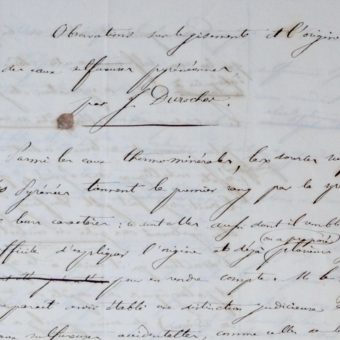 Observations sur le gisement et l'origine
des eaux sulfureuses pyrénéennes
par J. Durocher.
Parmi les eaux thermominérales, les sources
Pyrénées tiennent le premier rang par la
leur caractère : ce sont elles aussi dont il semble
difficile d'expliquer l'origine et déjà plusieurs
(on a proposé)
pour en rendre compte. M.
paraît avoir établi une distinction judicieuse
eaux sulfureuses accidentelles, comme celles